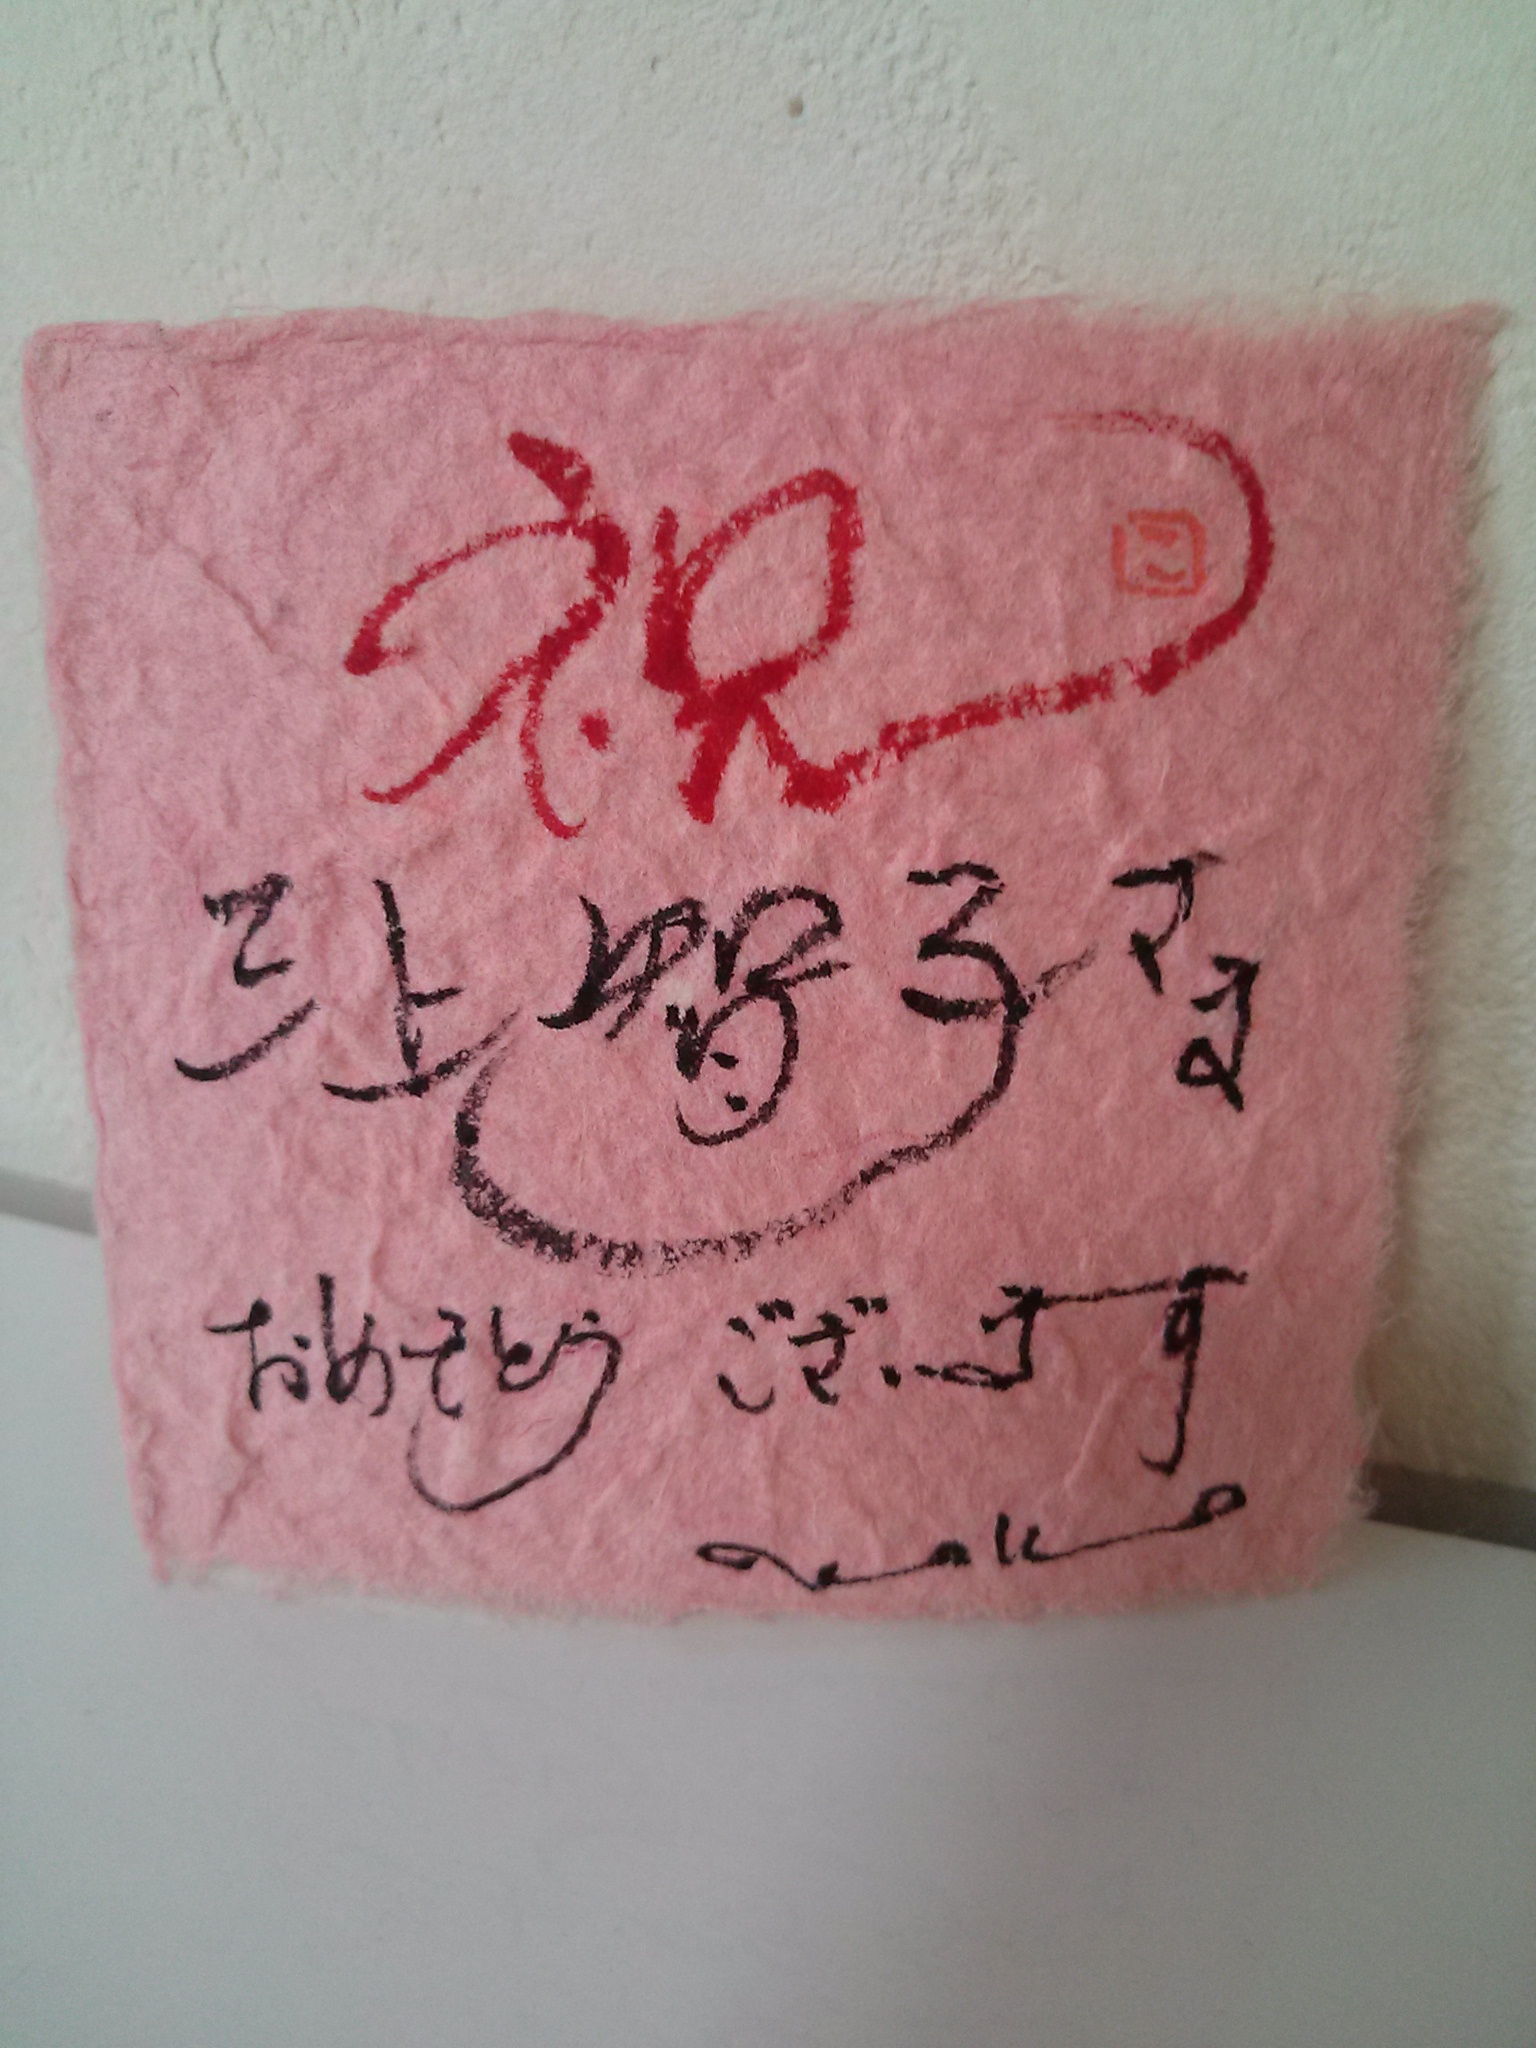 祝
三上 智子 さま
おめでとう ございます